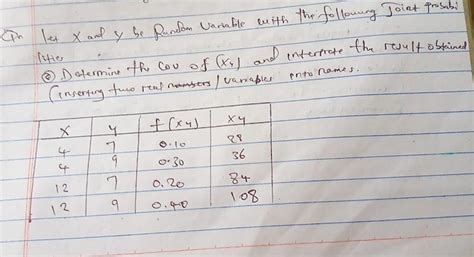 Qn let X and y be Random Variable with the following Joint probabi
lities
@ Determine the Cov of (xy) and interprete the result obtained
(inserting two real numbers/ variables onto names.
X y f(xy) xy
4 7 0.10 28
4 9 0.30 36
12 7 0.20 84
12 9 0.40 108